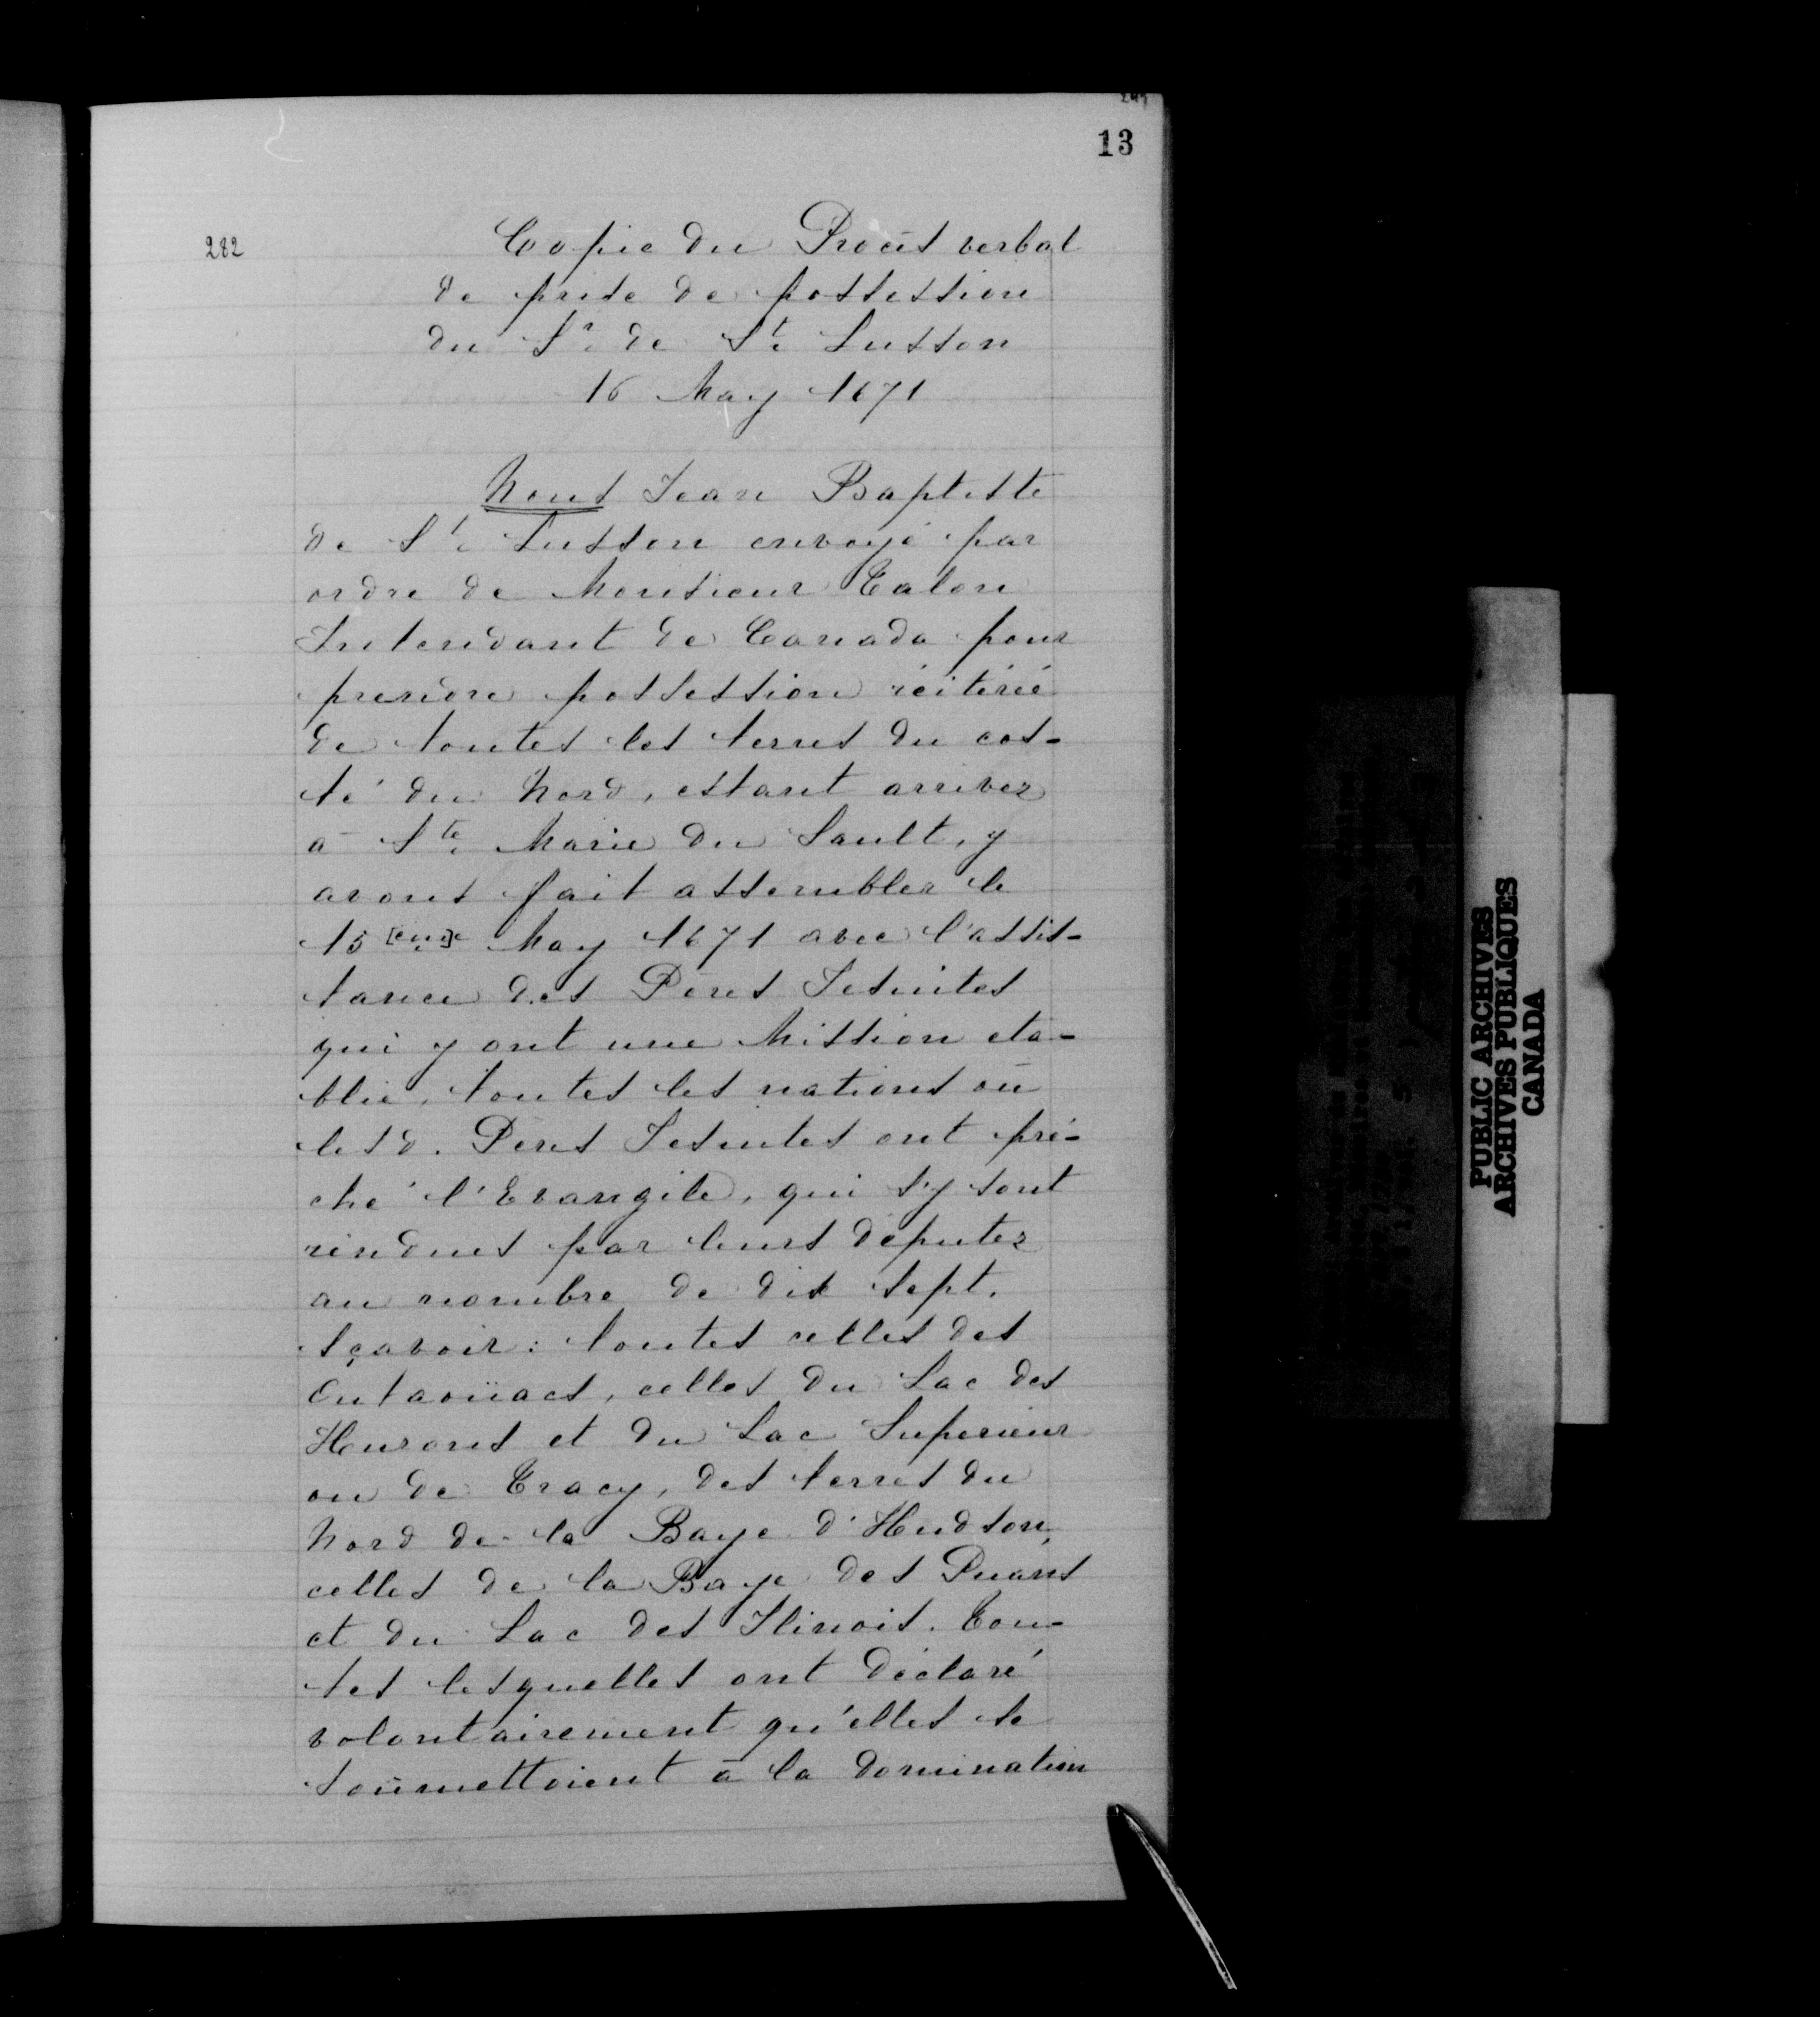 13
282
Copie du Procès verbal
de prise de possession
du Sr. de St. Lusson
16 May 1671
Nous Jean Baptiste
de St. Lusson envoyé par
ordre de Monsieur Talon
Intendant de Canada pour
prendre possession réitérée
de toutes les terres du cos-
té du Nord, estant arrivez
à Ste. Marie du Sault, y
avons fait assembler le
15 [eme] May 1671 avec l'assis-
tance des Pères Jesuites
qui y ont une Mission eta-
blie, toutes les nations où
lesd. Peres Jesuites ont prê-
ché l'Evangile, qui s'y sont
rendues par leurs députez
au nombre de dix sept.
Sçavoir: toutes celles des
Outaoüacs, celles du Lac des
Hurons et du Lac Superieur
ou de Tracy, des terres du
Nord de la Baye d'Hudson,
celles de la Baye des Puans
et du Lac des Ilinois. Tou-
tes lesquelles ont déclaré
volontairement qu'elles se
soûmettoient à la domination
PUBLIC ARCHIVES
ARCHIVES PUBLIQUES
CANADA